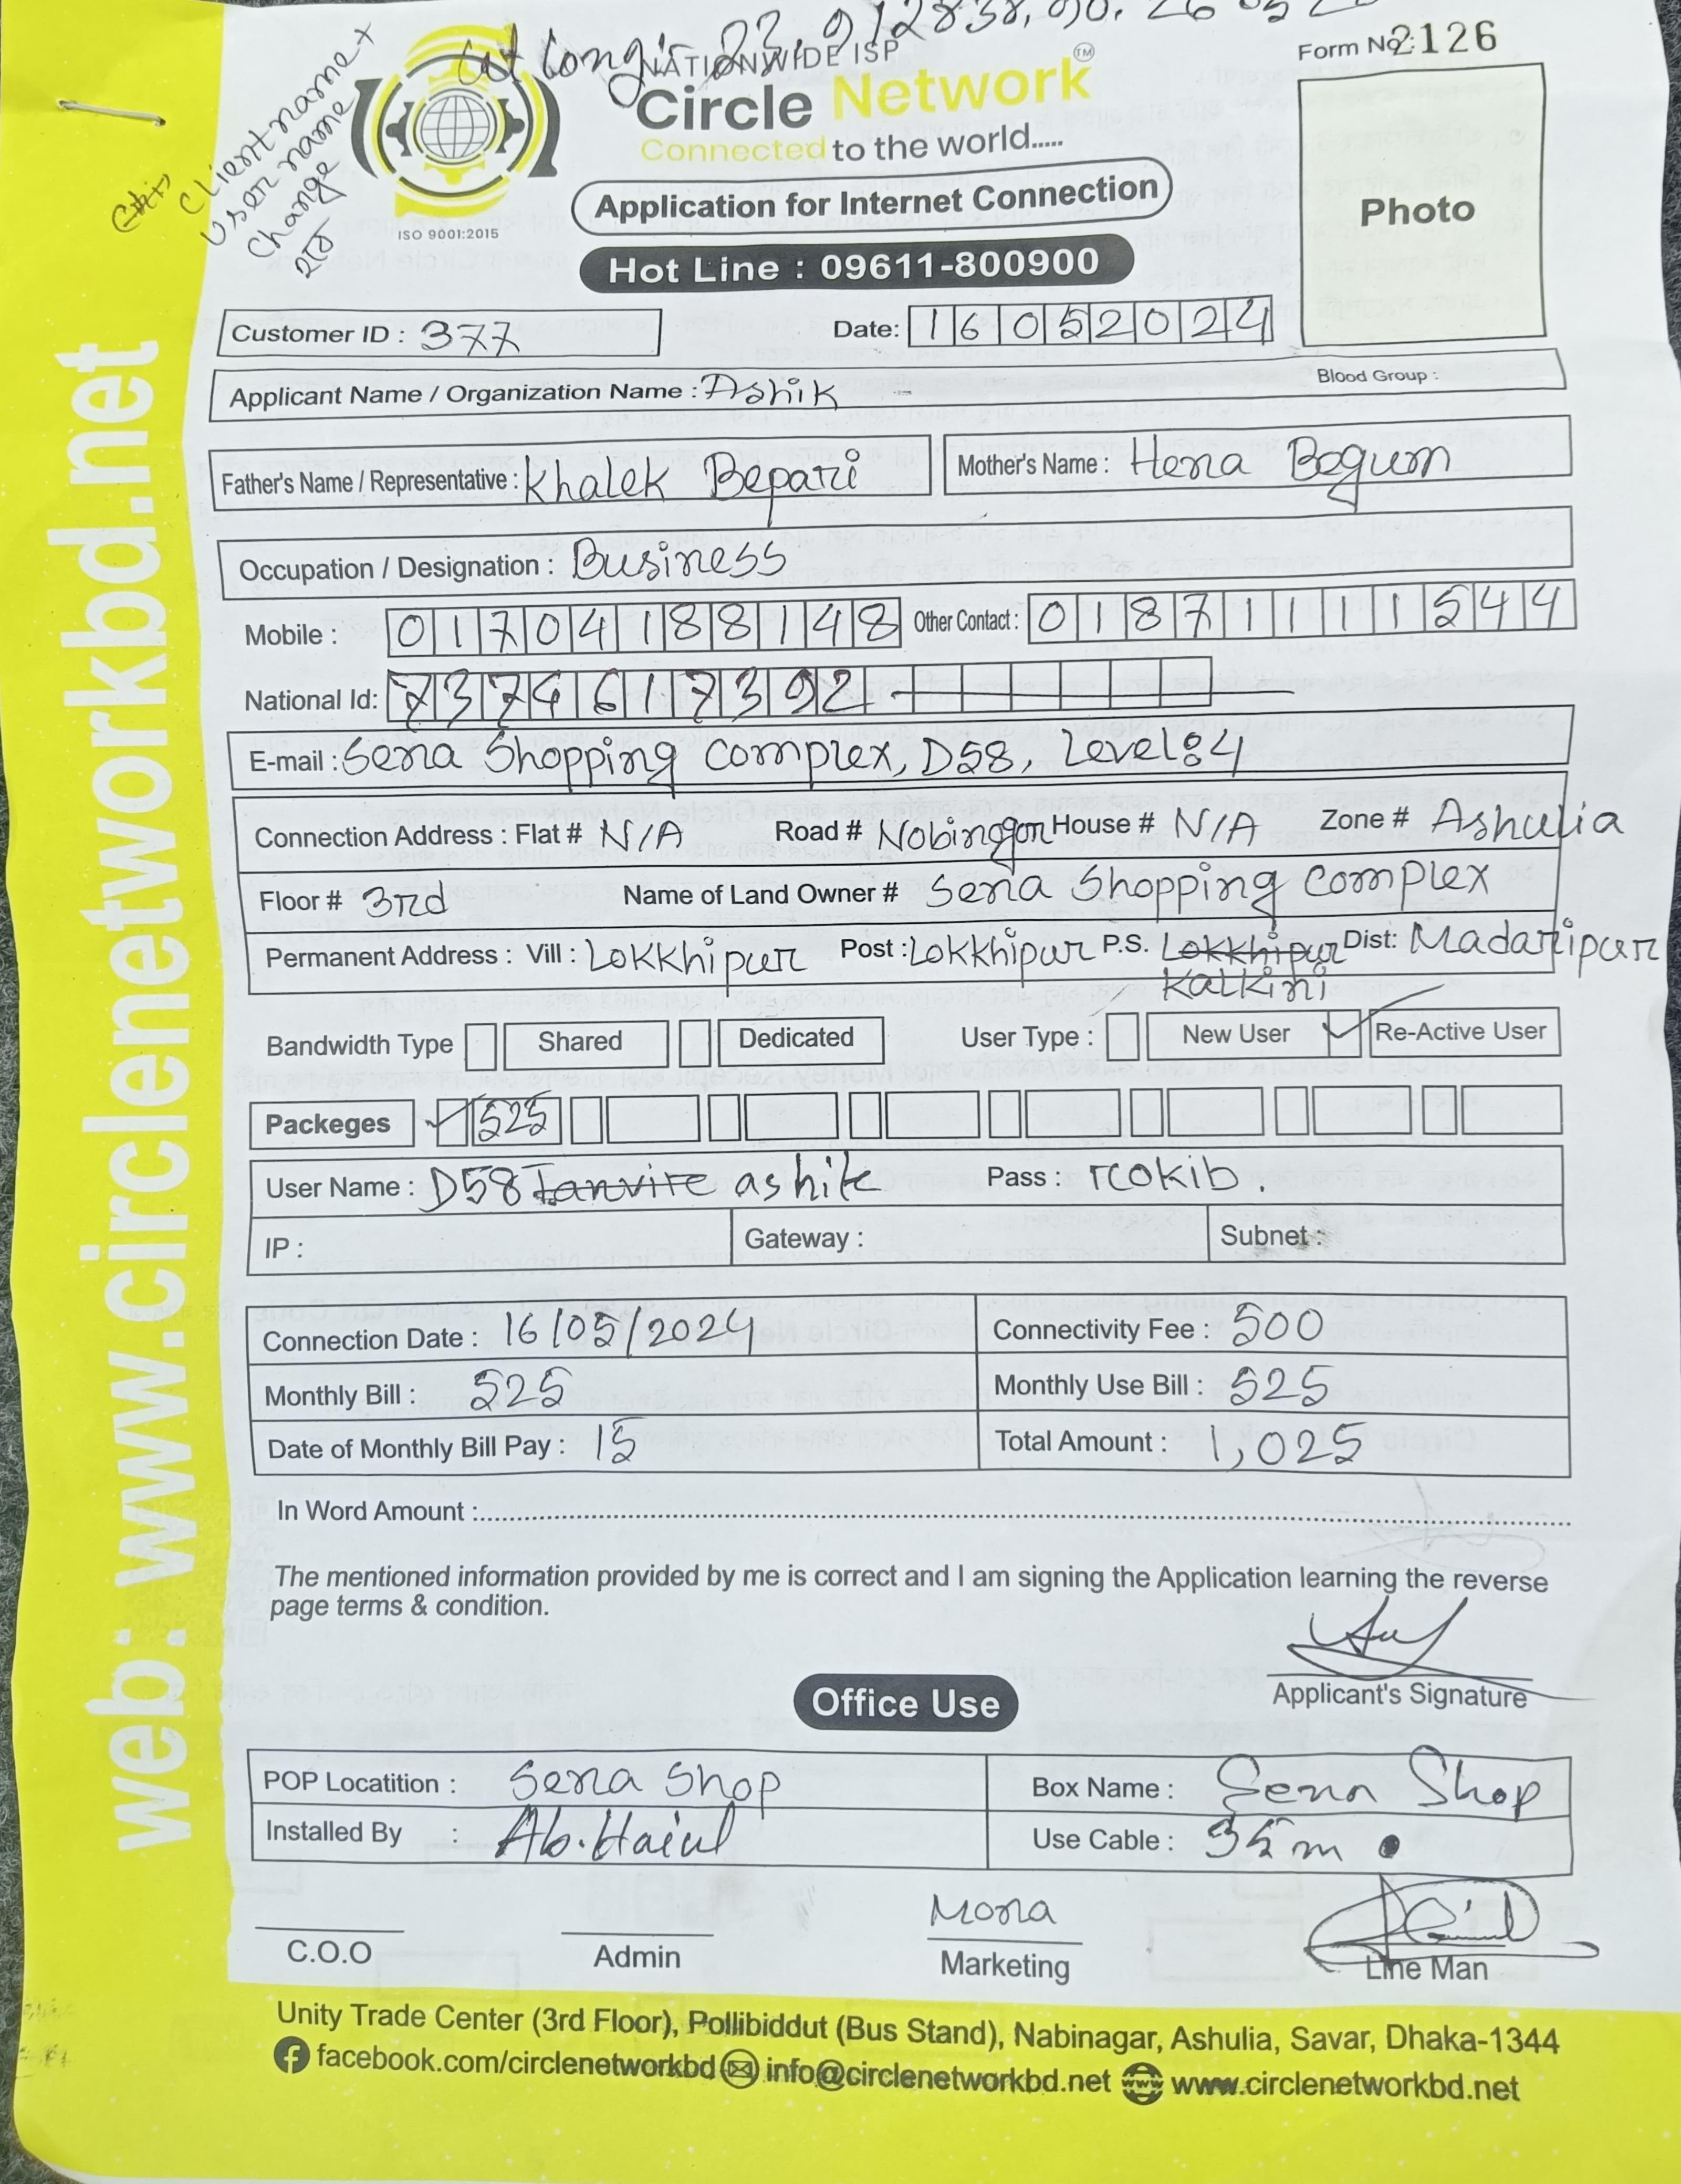 NATIONWIDE ISP
Circle Network TM
Connected to the world.....
Application for Internet Connection
Hot Line : 09611-800900
ISO 9001:2015
Form No: 2126
Photo
Client name x
User name
Change
হবে
web: www.circlenetworkbd.net
Customer ID : 377 Date: 16052024
Applicant Name / Organization Name : Ashik Blood Group :
Father's Name / Representative : Khalek Bepari Mother's Name : Hena Begum
Occupation / Designation : Business
Mobile : 01704188148 Other Contact : 01871111544
National Id: 7374617392
E-mail : Sena Shopping Complex, D58, Level:4
Connection Address : Flat # N/A Road # Nobinagar House # N/A Zone # Ashulia
Floor # 3rd Name of Land Owner # Sena Shopping Complex
Permanent Address : Vill : Lokkhipur Post : Lokkhipur P.S. Lokkhipur Dist: Madaripur
Kalkini
Bandwidth Type Shared Dedicated User Type : New User Re-Active User
Packeges 525
User Name : D58 Tanvire ashik Pass : rokib.
IP : Gateway : Subnet :
Connection Date : 16/05/2024 Connectivity Fee : 500
Monthly Bill : 525 Monthly Use Bill : 525
Date of Monthly Bill Pay : 15 Total Amount : 1,025
In Word Amount :
The mentioned information provided by me is correct and I am signing the Application learning the reverse
page terms & condition.
Applicant's Signature
Office Use
POP Locatition : Sena Shop Box Name : Sena Shop
Installed By : Use Cable : 35 m
Mona
C.O.O Admin Marketing Line Man
Unity Trade Center (3rd Floor), Pollibiddut (Bus Stand), Nabinagar, Ashulia, Savar, Dhaka-1344
facebook.com/circlenetworkbd info@circlenetworkbd.net www.circlenetworkbd.net